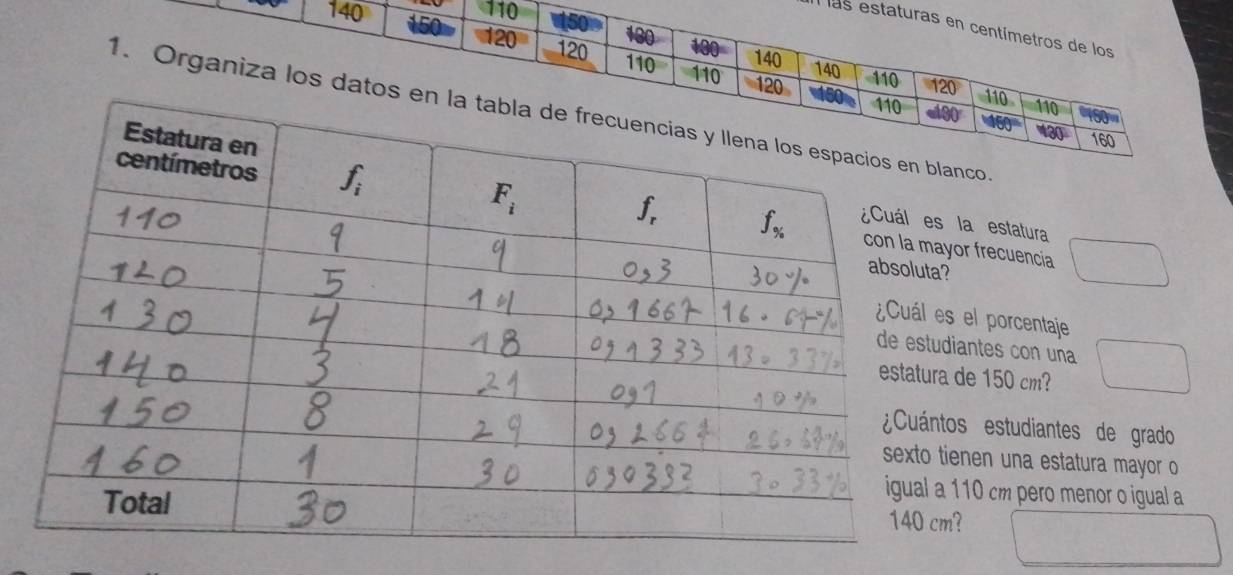 las estaturas en centímetros de los
140 110 150 130 130 140 140 110 120 110 110 150
150 120 120 110 110 120 150 110 130 150 130 160
1. Organiza los datos en la tabla de frecuencias y llena los espacios en blanco.
Estatura en centímetros fi Fi fr f%
110 9 9 0,3 30%
120 5 14 0,1667 16.67%
130 4 18 0,1333 13.33%
140 3 21 0,1 10%
150 8 29 0,2667 26.67%
160 1 30 0,0333 3.33%
Total 30
¿Cuál es la estatura
con la mayor frecuencia
absoluta?
¿Cuál es el porcentaje
de estudiantes con una
estatura de 150 cm?
¿Cuántos estudiantes de grado
sexto tienen una estatura mayor o
igual a 110 cm pero menor o igual a
140 cm?